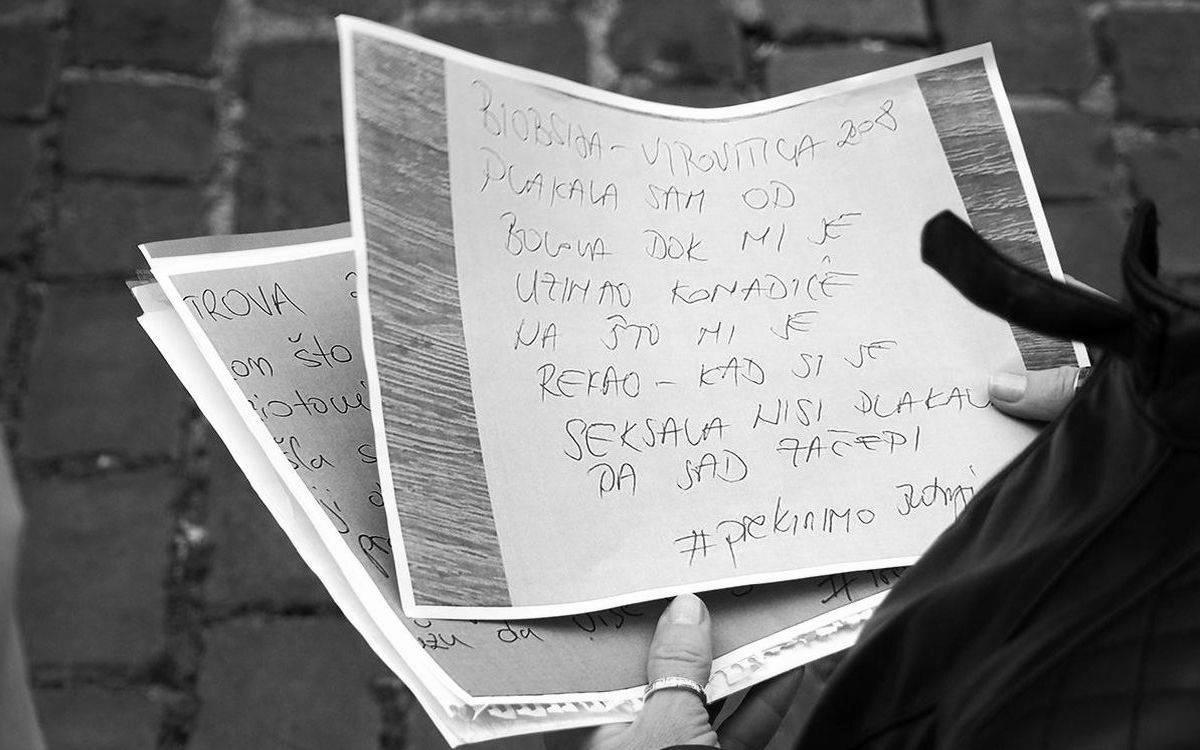 BIOBSIJA – VIROVITICA 2008
PLAKALA SAM OD
BOLOVA DOK MI JE
UZIMAO KOMADIĆE
NA ŠTO MI JE
REKAO – KAD SI SE
SEKSALA NISI PLAKAL
DA SAD ZAČEPI
#prekinimo
TROVA
om što
šla s
da više